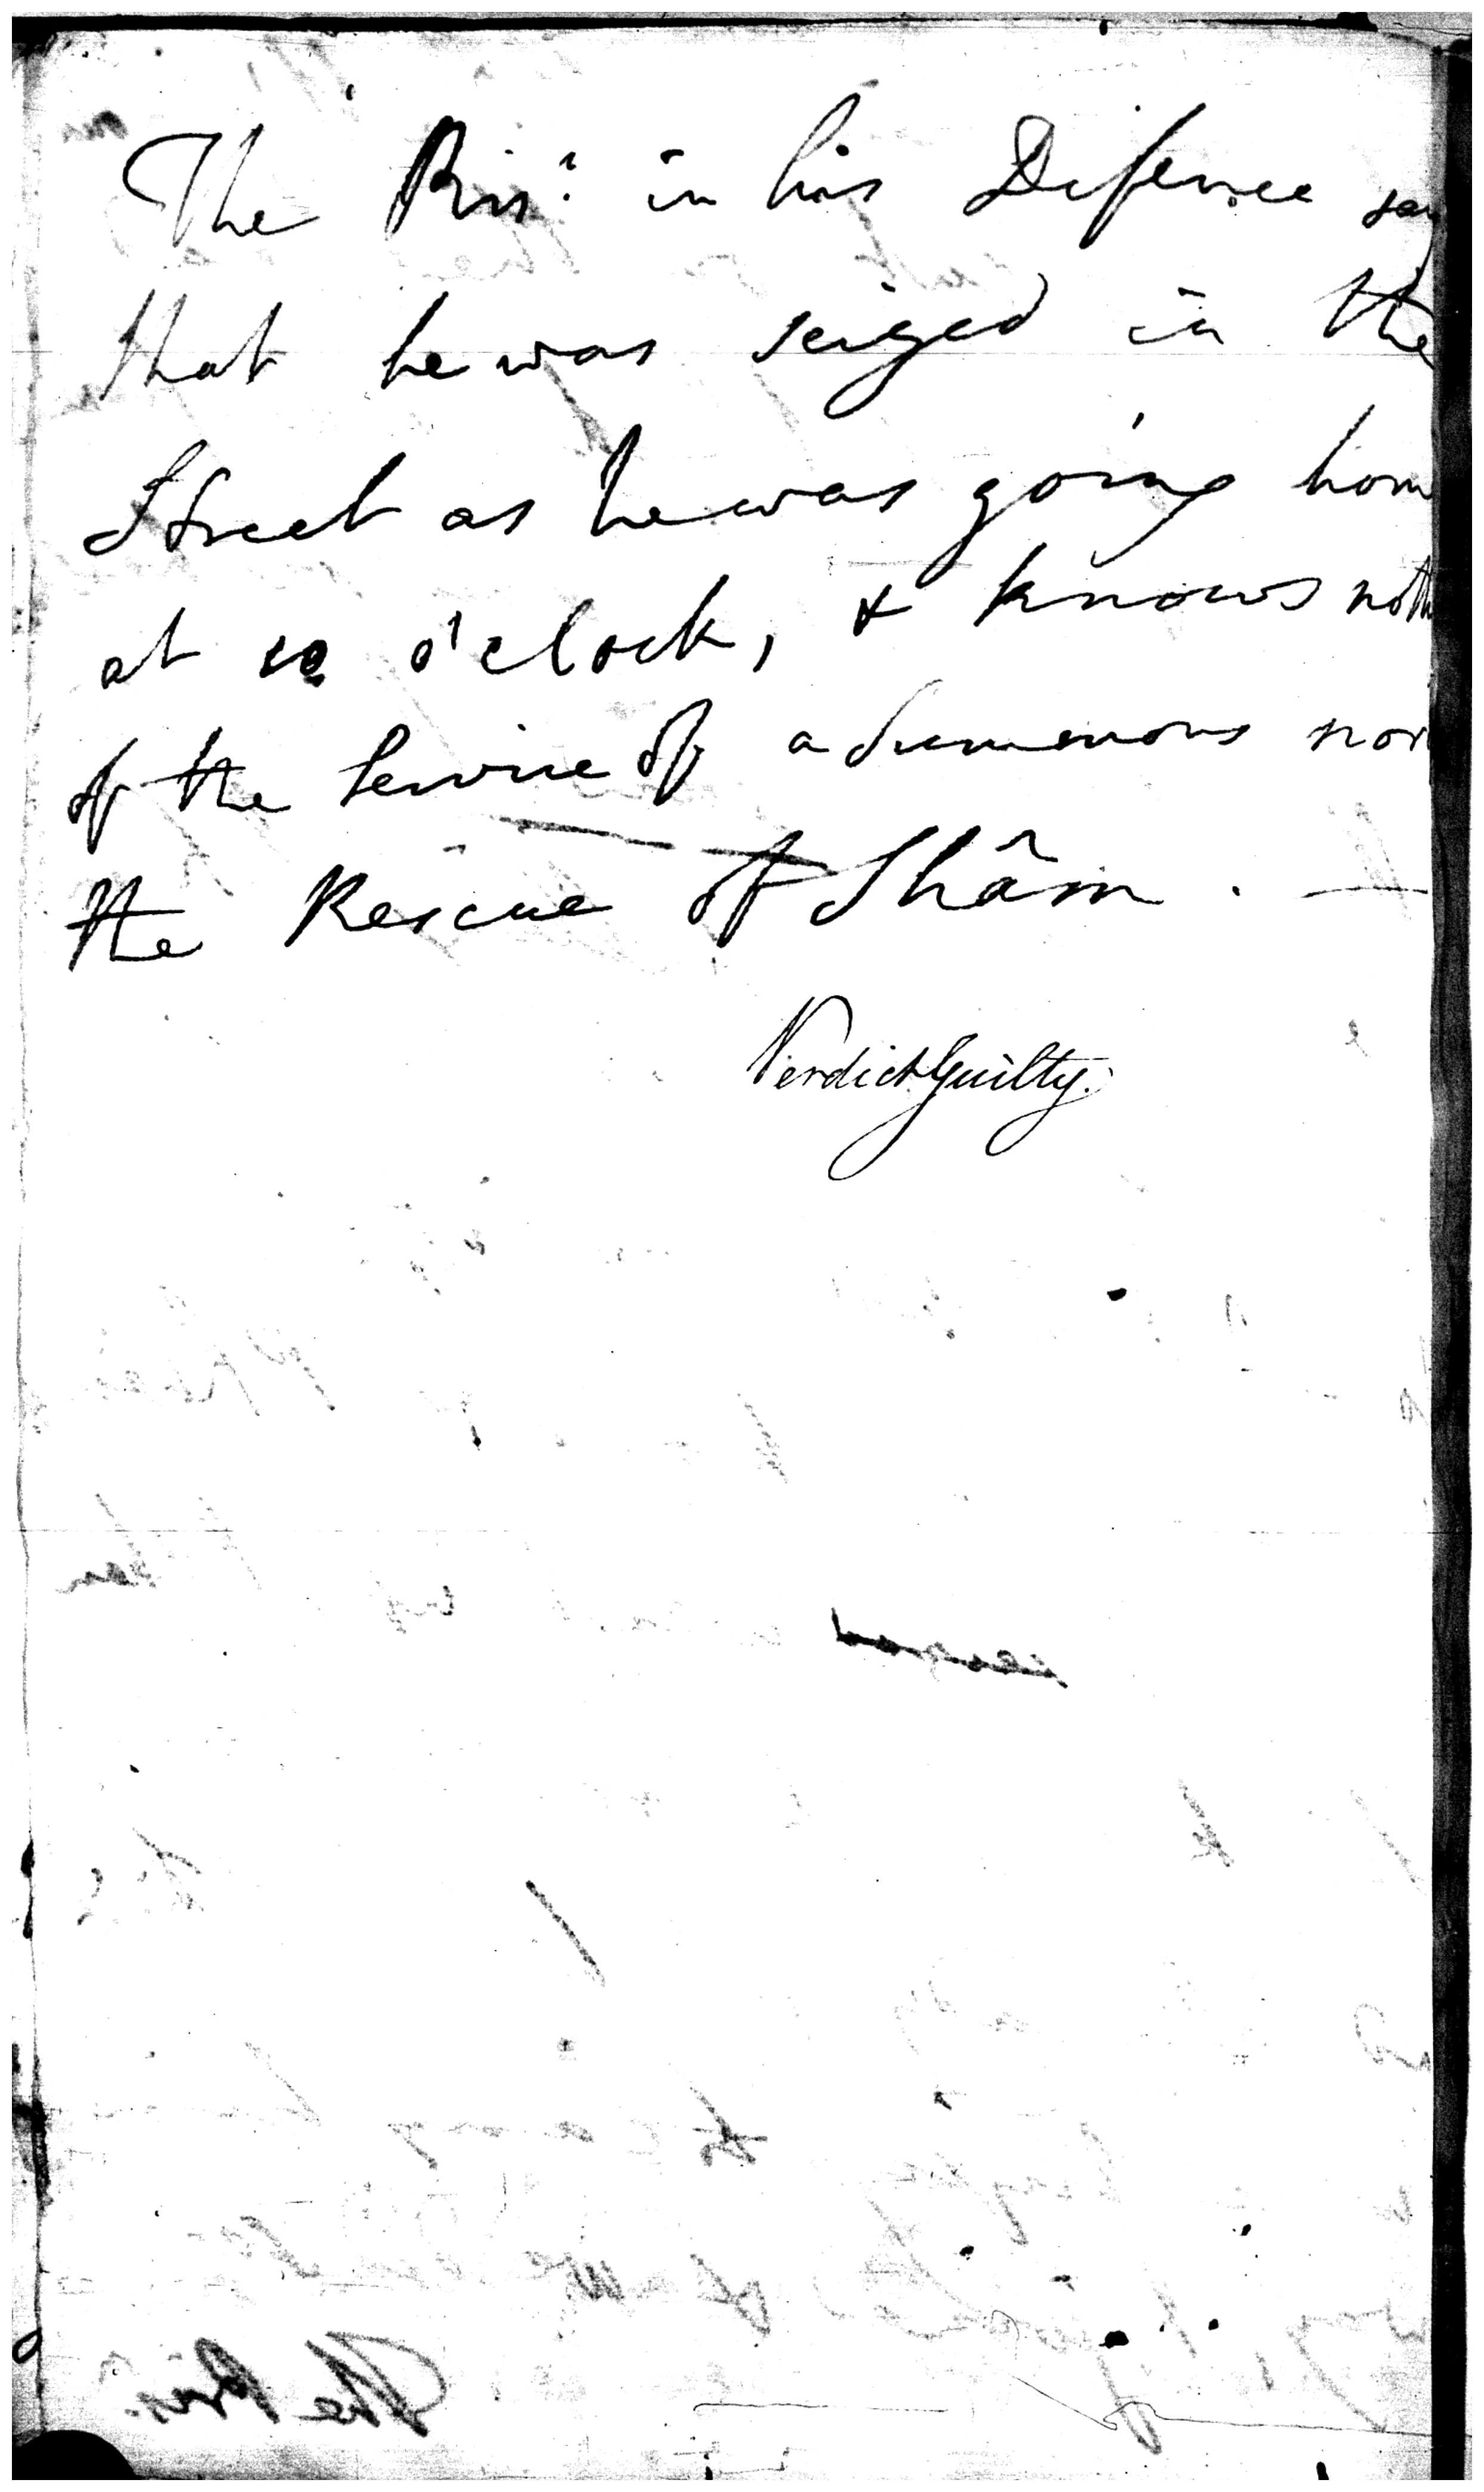 The Prisr in his Defence say
that he was seized in the
Street as he was going hom
at 10 o'clock, & knows noth
of the Service of a Summons nor
the Rescue of Shâm. —
Verdict Guilty.